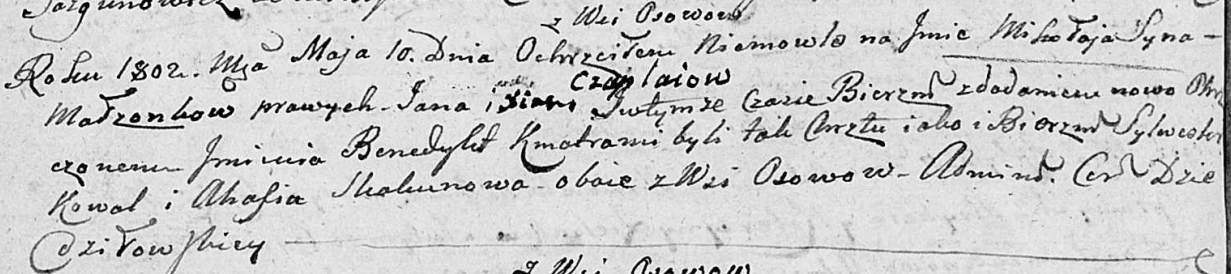 z Wsi Osowow
Roku 1802. Mca Maja 10. Dnia Ochrzciłem Niemowle na Jmie Mikołaja Syna
Małzonkow prawych Jana i Czaplaiow Jwtymże Czasie Bierzm z dodaniem nowo Ohrz
czonemu Jmienia Benedykt Kmotrami byli tak Chrztu iako i Bierzm Sylwester
Kowal i Ahafia Skakunowa oboie z Wsi Osowow - Admin. Cer Dzie
dziłowskiey
z Wsi Osowow